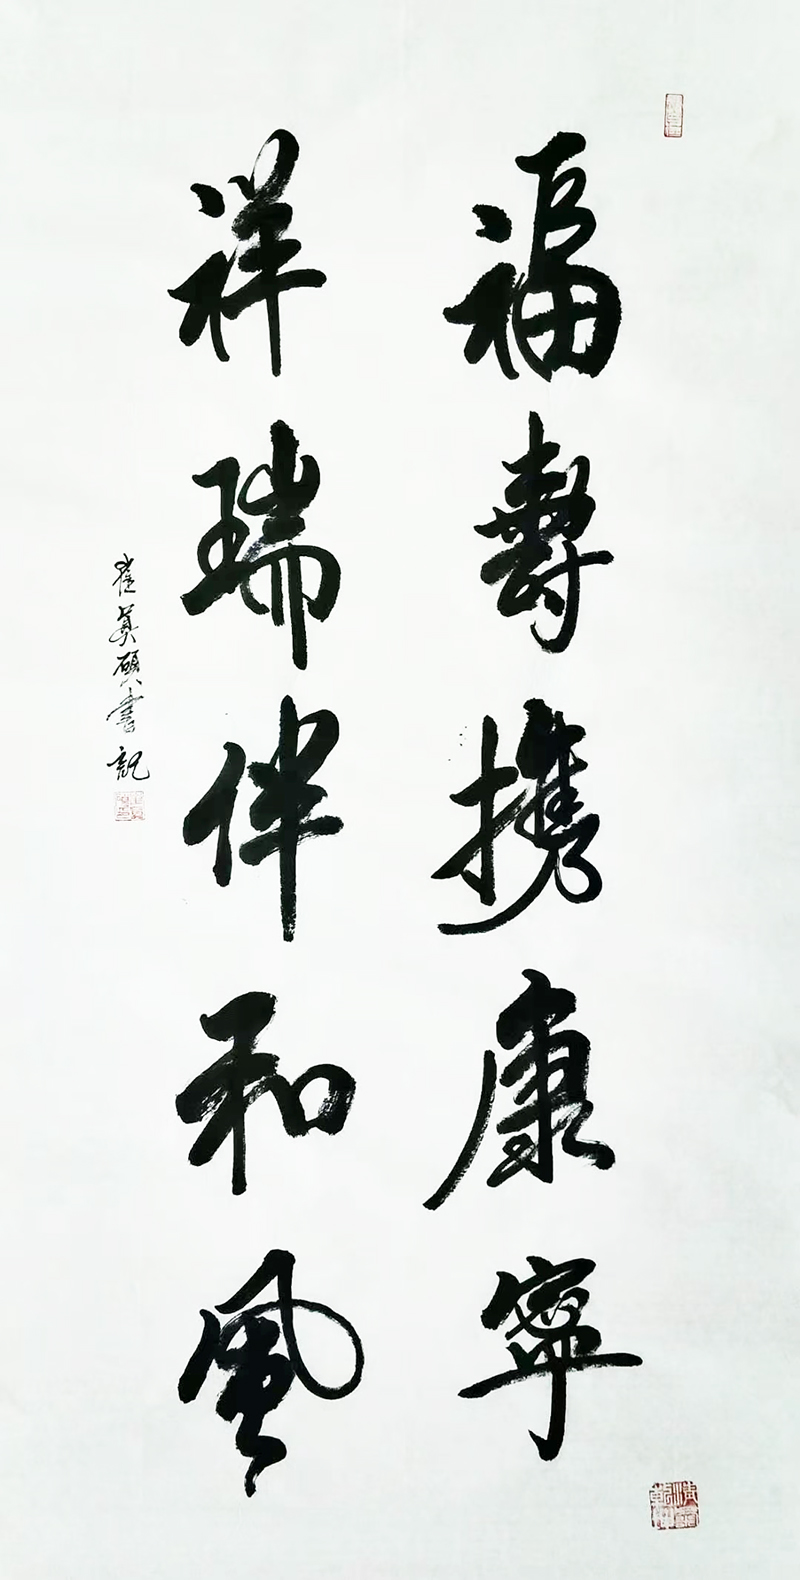 福壽携康寧
祥瑞伴和風
崔英碩書記